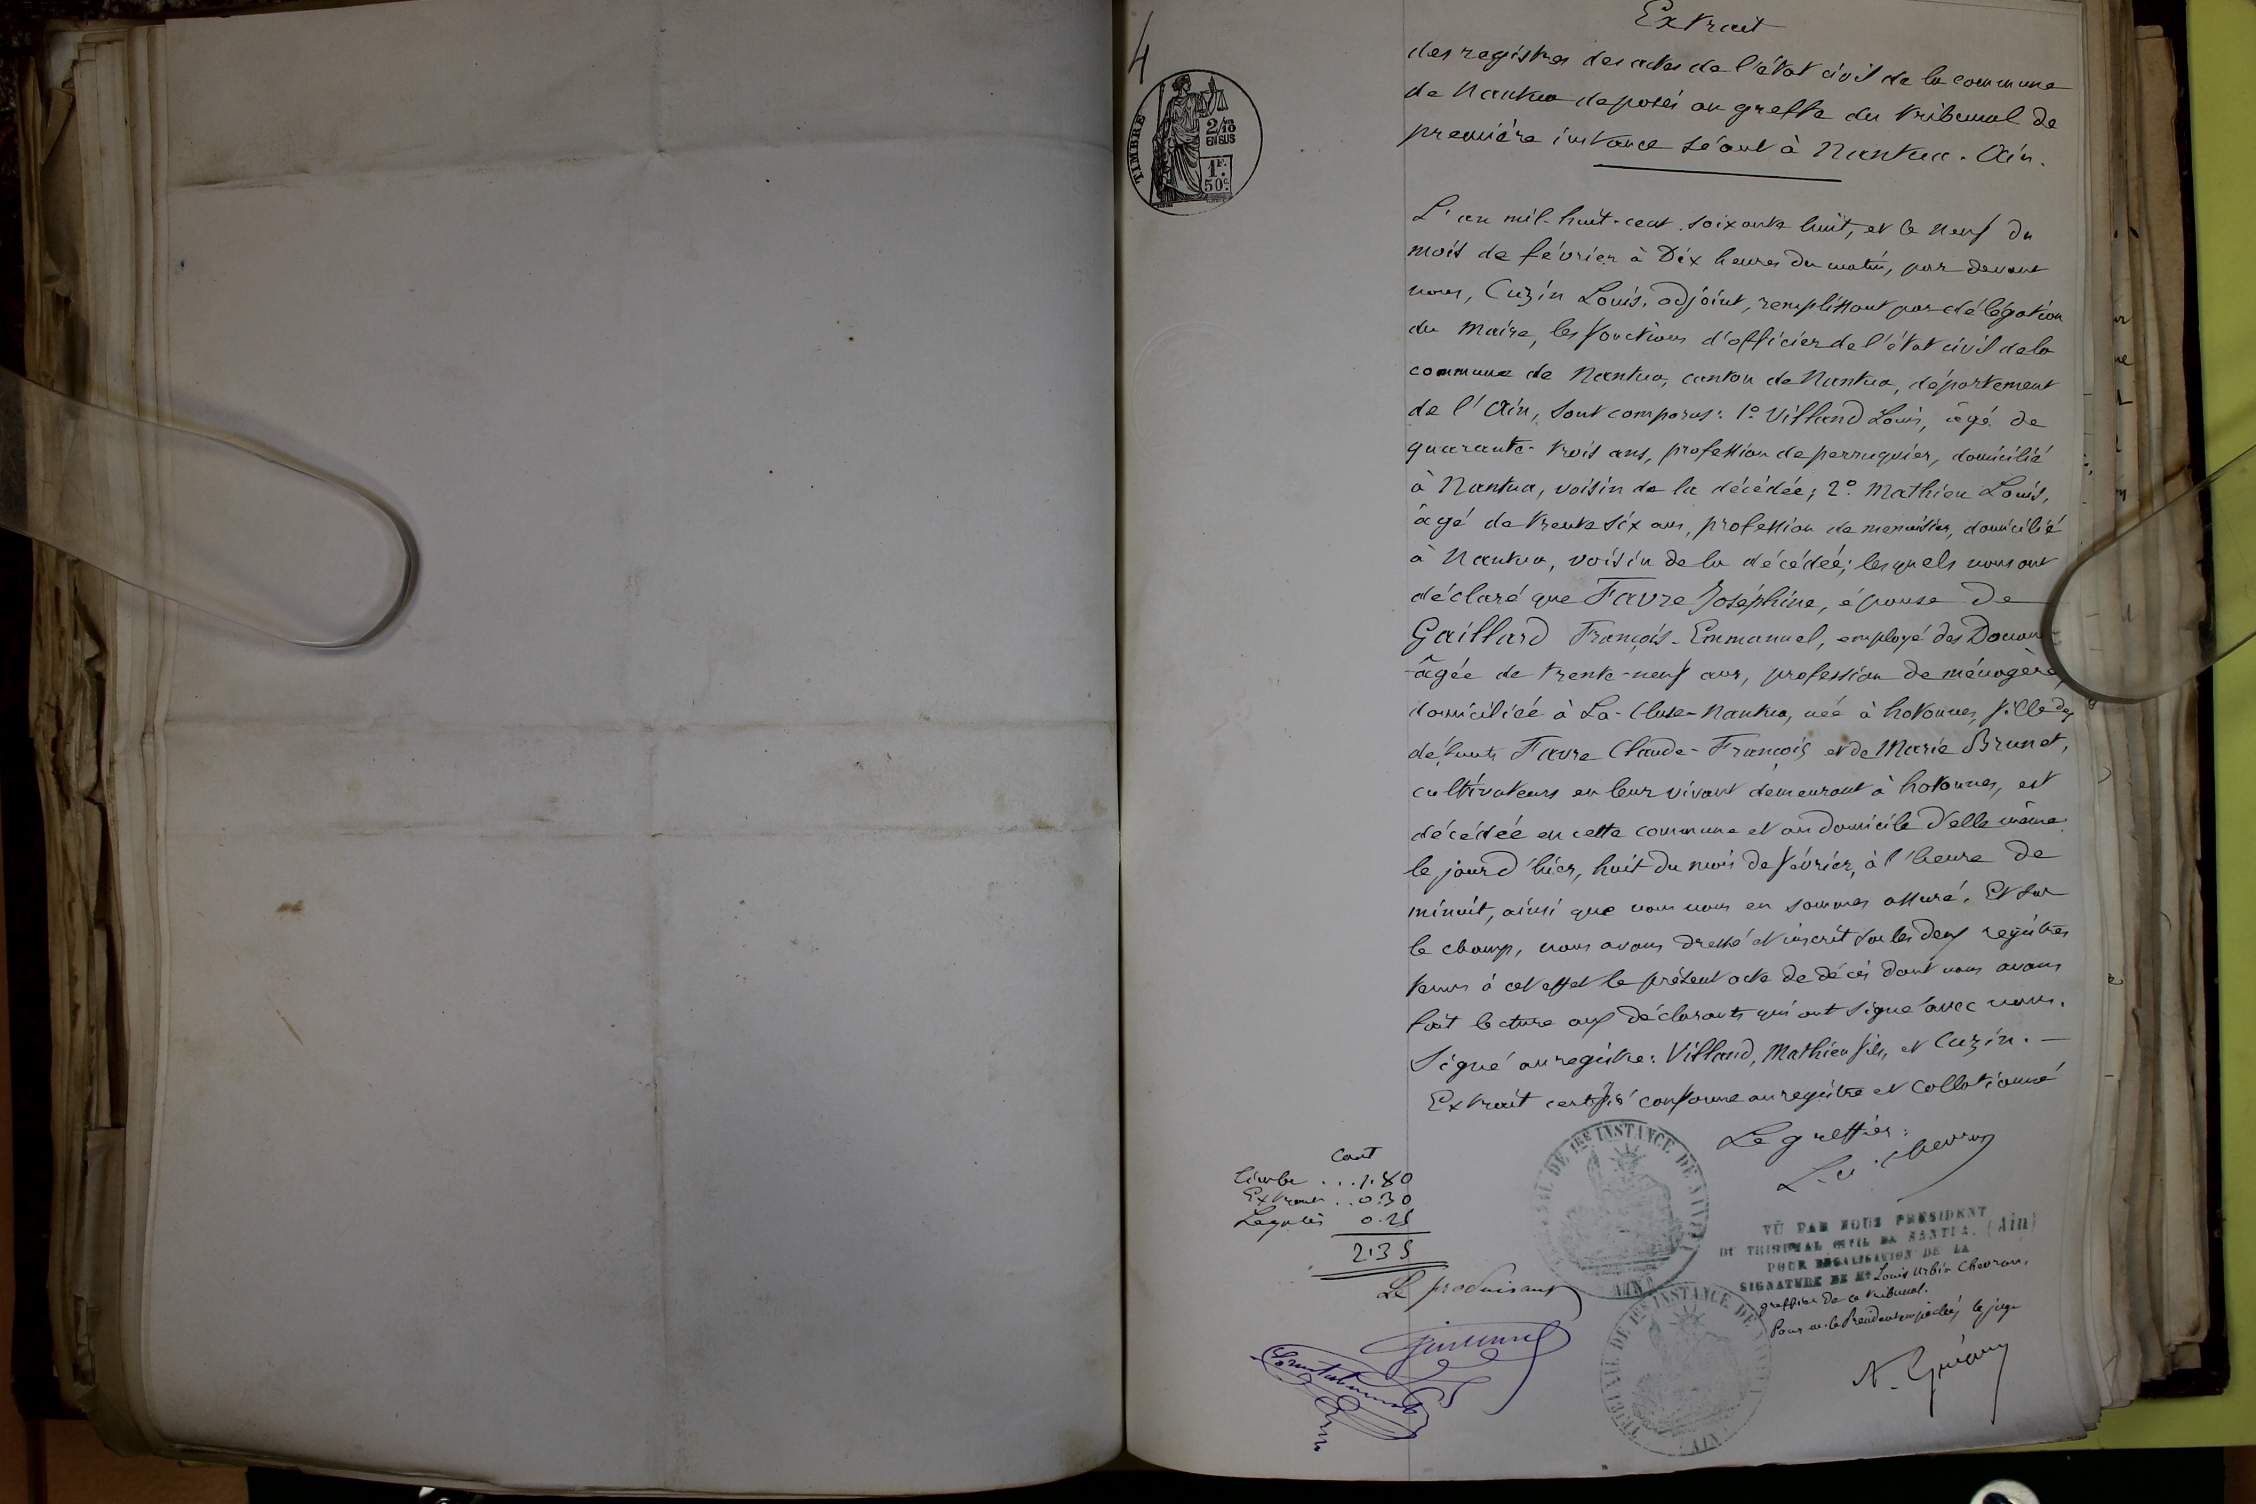 4
TIMBRE
2/10
EN SUS
1F.
50c.
Extrait
des registres des actes de l'état civil de la commune
de Nantua deposés au greffe du tribunal de
première instance séant à Nantua. Ain.
L'an mil-huit-cent soixante huit, et le neuf du
mois de février à Dix heures du matin, par devant
nous, Cuzin Louis, adjoint, remplissant par délégation
du Maire, les fonctions d'officier de l'état civil de la
commune de Nantua, canton de Nantua, département
de l'Ain, sont comparus: 1º Villand Louis, âgé de
quarante-trois ans, profession de perruquier, domicilié
à Nantua, voisin de la décédée; 2º Mathieu Louis,
âgé de trente six ans, profession de menuisier, domicilié
à Nantua, voisin de la décédée; lesquels nous ont
déclaré que Favre Joséphine, épouse de
Gaillard François-Emmanuel, employé des Douanes
âgée de trente-neuf ans, profession de ménagère,
domiciliée à La-Cluse-Nantua, née à hotonnes, fille des
défunts Favre Claude-François et de Marie Brunet,
cultivateurs en leur vivant demeurant à hotonnes, est
décédée en cette commune et au domicile d'elle même
le jour d'hier, huit du mois de février, à l'heure de
minuit, ainsi que nous nous en sommes assuré. Et sur
le champ, nous avons dressé et inscrit sur les deux registres
tenus à cet effet le présent acte de décès dont nous avons
fait lecture aux déclarants qui ont signé avec nous.
Signé au registre: Villand, Mathieu fils, et Cuzin. —
Extrait certifié conforme au registre et collationné
Le greffier:
L. U. Chevron
Cout
Timbre ... 1.80
Extrait .. 0.30
Legalis 0.25
2.35
Le produisant
TRIBUNAL DE 1RE INSTANCE DE NANTUA
AIN
VU PAR NOUS PRÉSIDENT
DU TRIBUNAL CIVIL DE NANTUA (Ain)
POUR LÉGALISATION DE LA
SIGNATURE DE Me Louis Urbin Chevron,
greffier de ce tribunal.
Pour m. le Président empêché, le juge
TRIBUNAL DE 1RE INSTANCE DE NANTUA
AIN